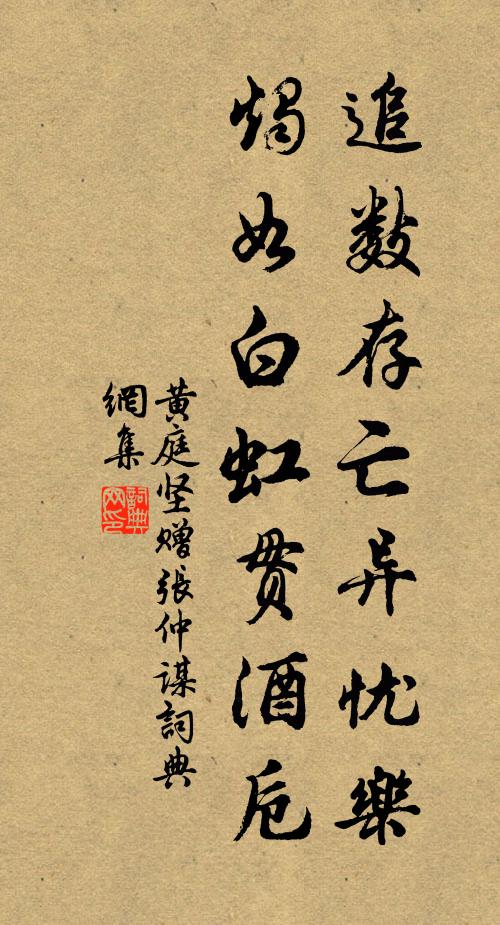 追数存亡异忧樂
烛如白虹贯酒卮
黄庭坚赠張仲谋詞典
網集
詞典网印